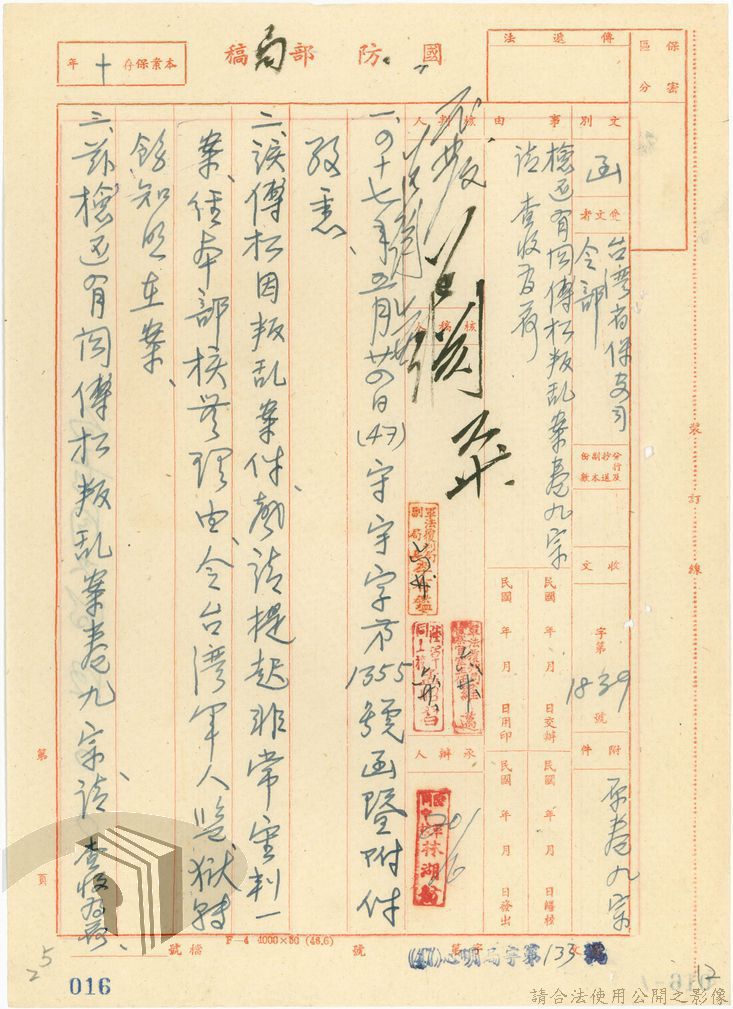 保密
區分
傳遞
法
國防部局稿
本案保存十年
文別
函
受文者
台湾省保安司令部
事由
檢还有関傅松叛乱案卷九宗
请查收為荷
核判人
核稿人
承辦人
分行及
抄送
副本
份數
收文
字第
1839
號
附件
原卷九宗
民國 年 月 日交辦
民國 年 月 日用印
民國 年 月 日繕校
民國 年 月 日發出
一、四十七年五月廿四日(47)宇字第1355號函暨附件
敬悉、
二、該傅松因叛乱案件、聲请提起非常審判一
案、經本部核無理由、令台湾軍人監狱轉
飭知照在案、
三、茲檢还有関傅松叛乱案卷九宗、请查收為荷、
裝訂線
第
頁
檔號
F—4 4000×50 (46.6)
號
(47)心明局字第133號
52
016
12
請合法使用公開之影像